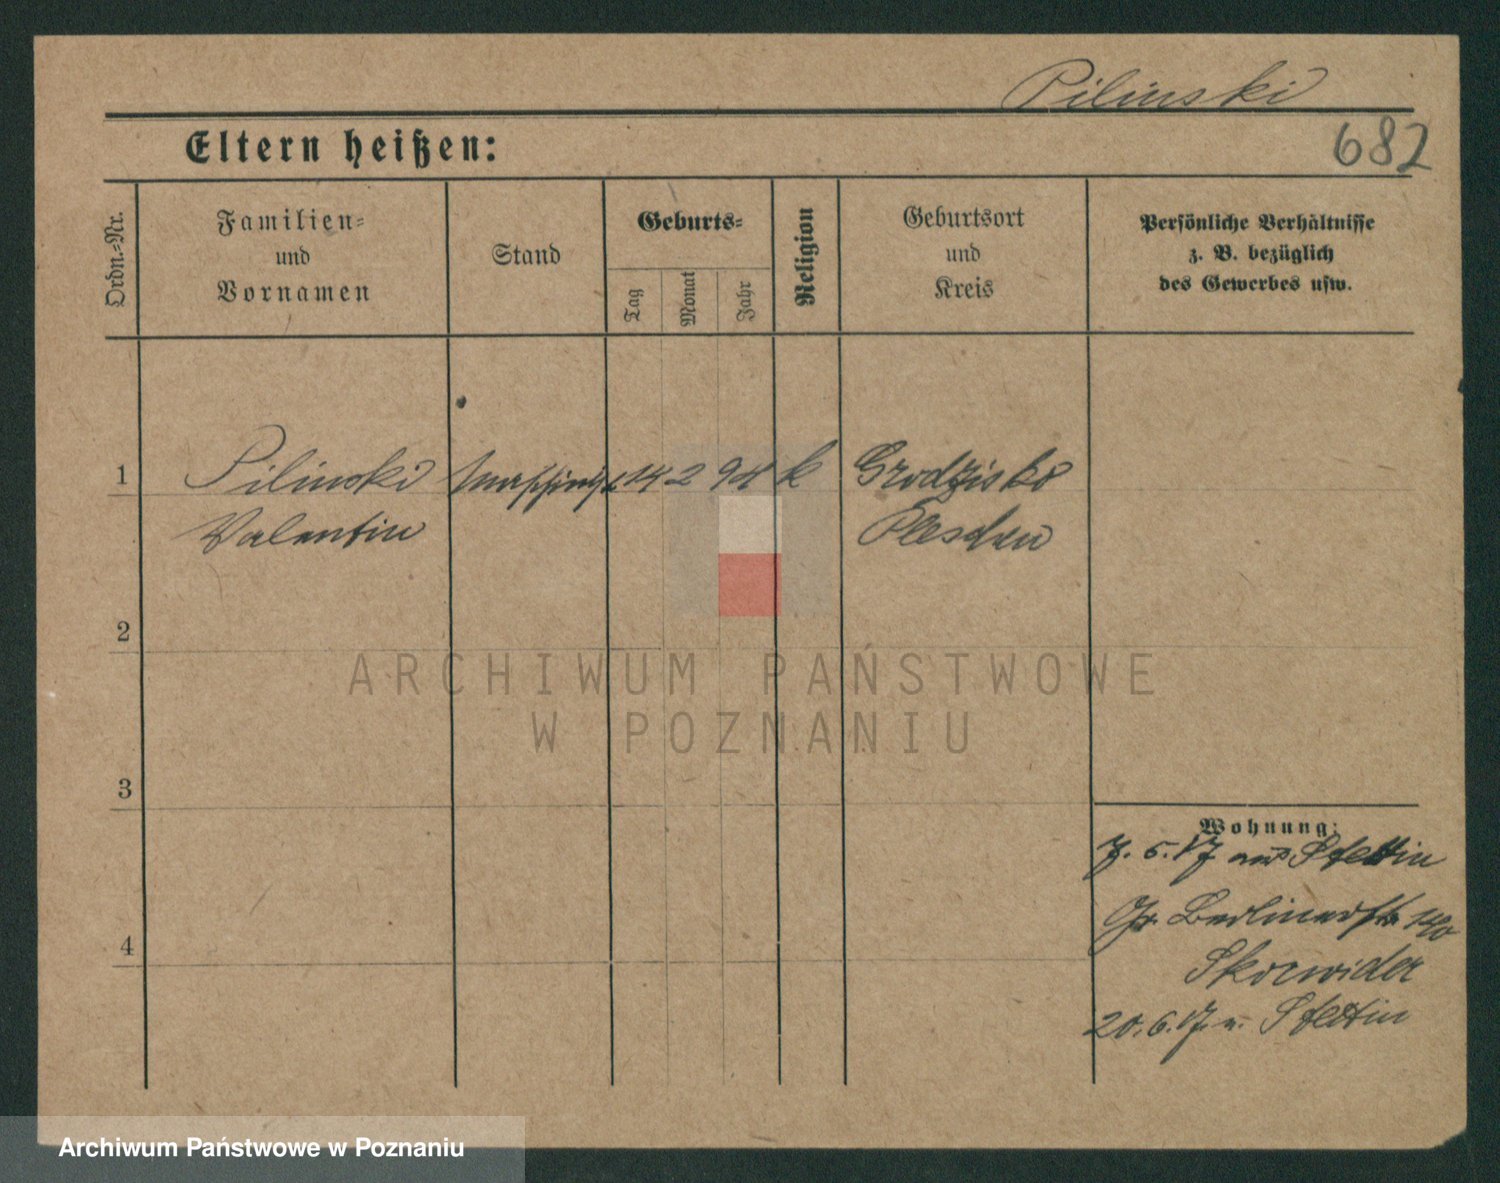 Pilinski
Eltern heißen:
682
Ordn.-Nr.
Familien-
und
Vornamen
Stand
Geburts-
Tag
Monat
Jahr
Religion
Geburtsort
und
Kreis
Persönliche Verhältnisse
z. B. bezüglich
des Gewerbes usw.
1
Pilinski
14 2 94 k
Grodzisko
Valentin
Pleschen
2
3
4
Wohnung:
7. 5. 17 aus Stettin
Gr. Berlinerstr 140
Skorwider
20. 6. 17 n. Stettin
ARCHIWUM PAŃSTWOWE
W POZNANIU
Archiwum Państwowe w Poznaniu